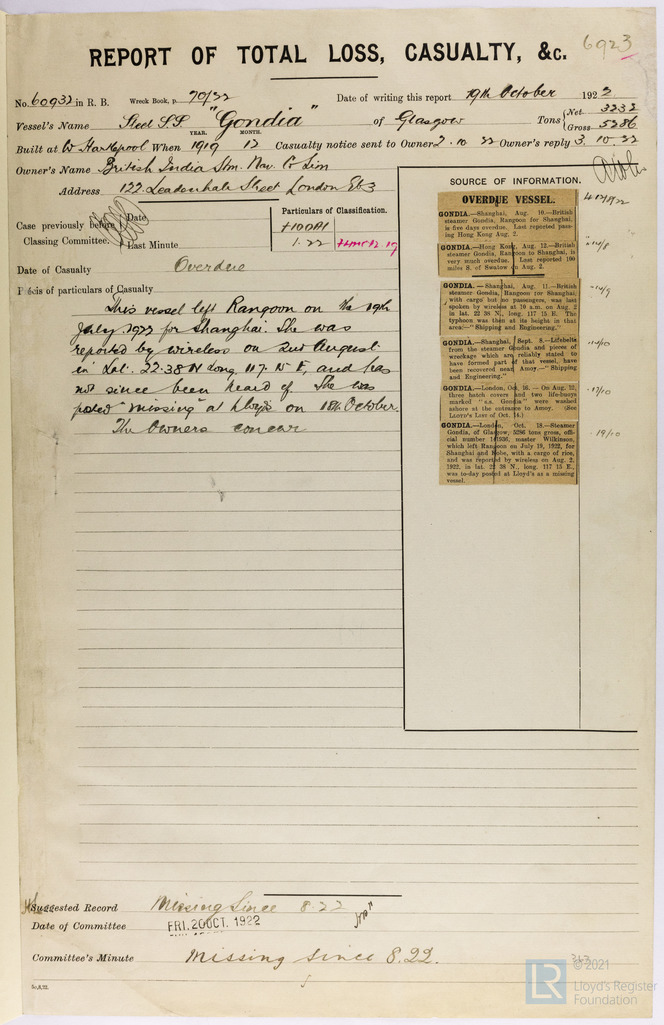 6923
REPORT OF TOTAL LOSS, CASUALTY, &c.
No. 60932 in R. B. Wreck Book, p. 70/22 Date of writing this report 19th October 1922
Vessel's Name Steel S.S. "Gondia" of Glasgow Tons { Net 3232
YEAR. MONTH. Gross 5286
Built at W Hartlepool When 1919 12 Casualty notice sent to Owners 2.10.22 Owner's reply 3.10.22
Owner's Name British India Stm. Nav. Co Lim
Address 122. Leadenhall Street London EC3
Case previously before Classing Committee. { Date
Last Minute
Particulars of Classification.
+100A1
1.22 +LMC 12.19
Date of Casualty Overdue
Précis of particulars of Casualty
This vessel left Rangoon on the 19th
July 1922 for Shanghai. She was
reported by wireless on 2nd August
in Lat. 22.38 N Long. 117.15 E, and has
not since been heard of. She was
posted "missing" at Lloyd's on 18th October.
The Owners concur
SOURCE OF INFORMATION.
OVERDUE VESSEL.
GONDIA.—Shanghai, Aug. 10.—British
steamer Gondia, Rangoon for Shanghai,
is five days overdue. Last reported pass-
ing Hong Kong Aug. 2.
GONDIA.—Hong Kong, Aug. 12.—British
steamer Gondia, Rangoon to Shanghai, is
very much overdue. Last reported 190
miles S. of Swatow on Aug. 2.
GONDIA.—Shanghai, Aug. 11.—British
steamer Gondia, Rangoon for Shanghai,
with cargo but no passengers, was last
spoken by wireless at 10 a.m. on Aug. 2
in lat. 22 38 N., long. 117 15 E. The
typhoon was then at its height in that
area.—"Shipping and Engineering."
GONDIA.—Shanghai, Sept. 8.—Lifebelts
from the steamer Gondia and pieces of
wreckage which are reliably stated to
have formed part of that vessel, have
been recovered near Amoy.—"Shipping
and Engineering."
GONDIA.—London, Oct. 26.—On Aug. 22,
three hatch covers and two life-buoys
marked "s.s. Gondia" were washed
ashore at the entrance to Amoy. (See
LLOYD'S LIST of Oct. 14.)
GONDIA.—London, Oct. 18.—Steamer
Gondia, of Glasgow, 5286 tons gross, offi-
cial number 141936, master Wilkinson,
which left Rangoon on July 19, 1922, for
Shanghai and Kobe, with a cargo of rice,
and was reported by wireless on Aug. 2,
1922, in lat. 22 38 N., long. 117 15 E.,
was to-day posted at Lloyd's as a missing
vessel.
17/10
19/10
Suggested Record Missing Since 8.22
Date of Committee FRI. 20 OCT. 1922
Committee's Minute Missing since 8.22.
LR
© 2021
Lloyd's Register
Foundation